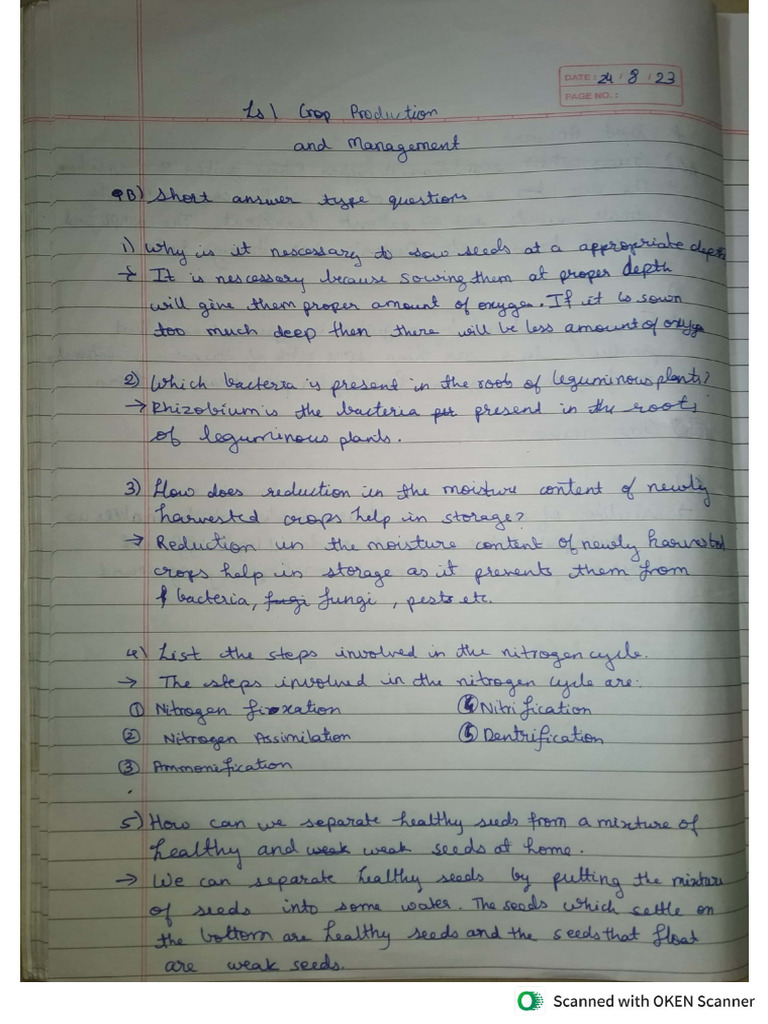 DATE: 24/8/23
PAGE NO.:
Ls 1 Crop Production
and Management
QB) Short answer type questions
1) Why is it nescessary to sow seeds at a appropriate depth
→ It is nescessary because sowing them at proper depth
will give them proper amount of oxygen. If it is sown
too much deep then there will be less amount of oxyge
2) Which bacteria is present in the roots of leguminous plants?
→ Rhizobium is the bacteria present in the roots
of leguminous plants.
3) How does reduction in the moisture content of newly
harvested crops help in storage?
→ Reduction in the moisture content of newly harvested
crops help in storage as it prevents them from
bacteria, fungi, pests etc.
4) List the steps involved in the nitrogen cycle.
→ The steps involved in the nitrogen cycle are:
① Nitrogen fixation ④ Nitrification
② Nitrogen Assimilation ⑤ Dentrification
③ Ammonification
5) How can we separate healthy seeds from a mixture of
healthy and weak weak seeds at home.
→ We can separate healthy seeds by putting the mixture
of seeds into some water. The seeds which settle on
the bottom are healthy seeds and the seeds that float
are weak seeds.
Scanned with OKEN Scanner